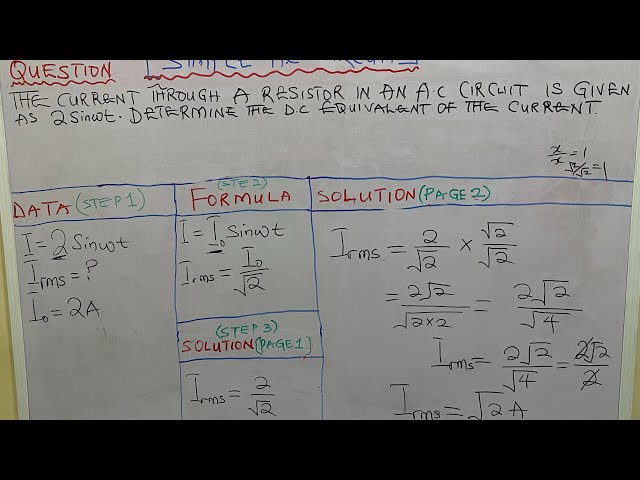 SIMPLE A.C CIRCUIT
QUESTION
THE CURRENT THROUGH A RESISTOR IN AN A.C CIRCUIT IS GIVEN
AS 2Sinωt. DETERMINE THE D.C EQUIVALENT OF THE CURRENT.
x/x = 1
√2/√2 = 1
DATA (STEP 1)
I = 2Sinωt
Irms = ?
I₀ = 2A
(STEP 2)
FORMULA
I = I₀Sinωt
Irms = I₀/√2
(STEP 3)
SOLUTION (PAGE 1)
Irms = 2/√2
SOLUTION (PAGE 2)
Irms = 2/√2 × √2/√2
= 2√2/√(2×2) = 2√2/√4
Irms = 2√2/√4 = 2√2/2
Irms = √2 A